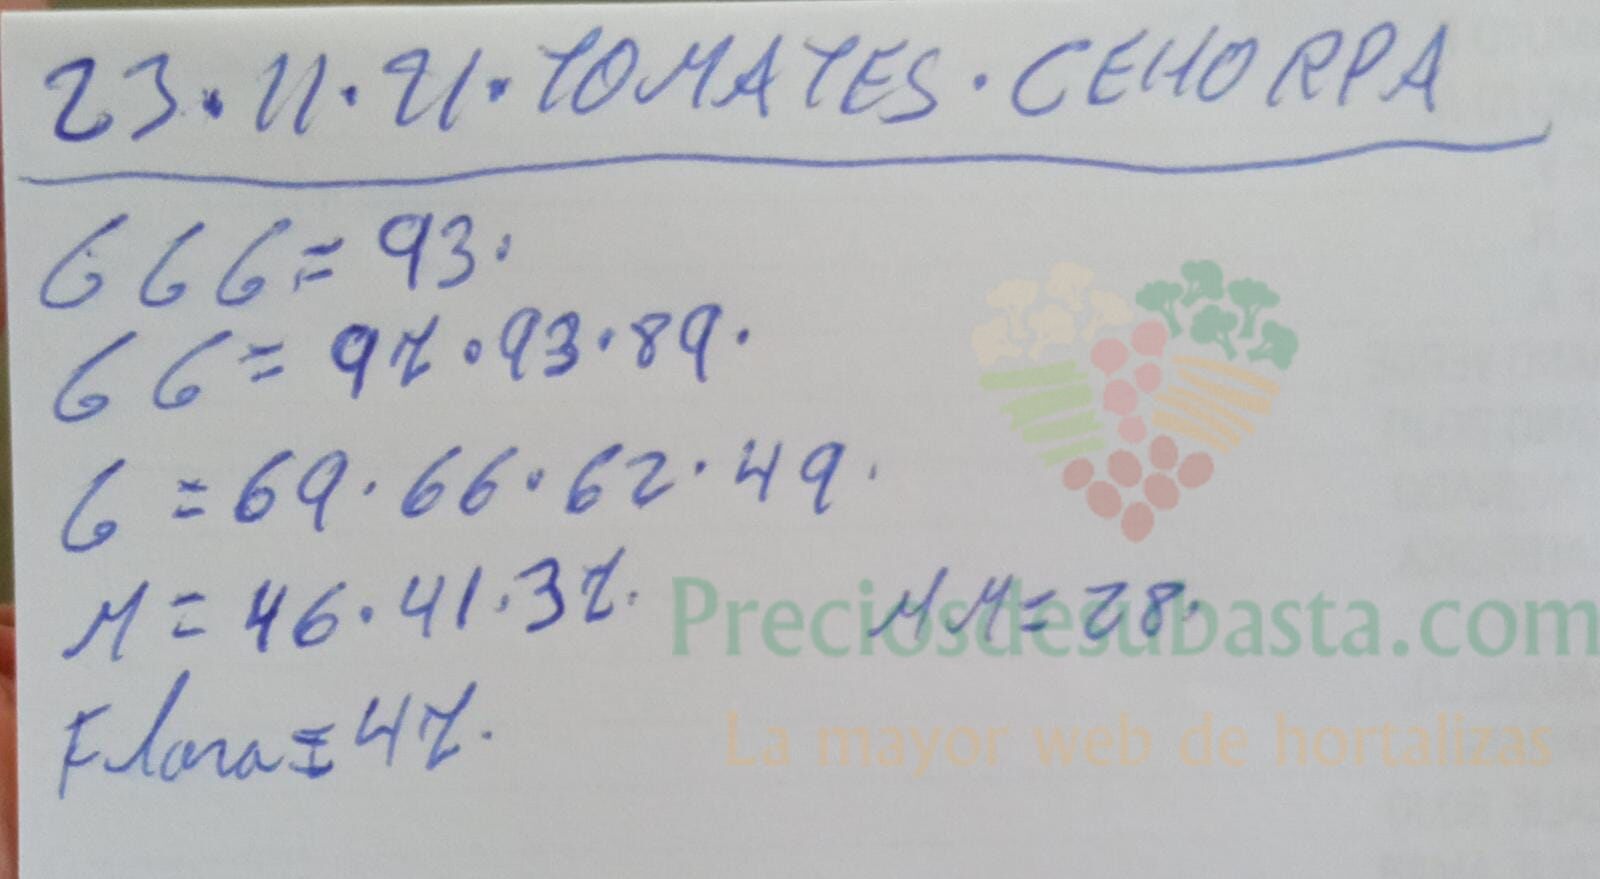 23·11·21·TOMATES·CEHORPA
GGG=93.
GG=97·93·89.
G=69·66·62·49.
M=46·41·37. MM=28.
Flora=47.
Preciosdesubasta.com
La mayor web de hortalizas